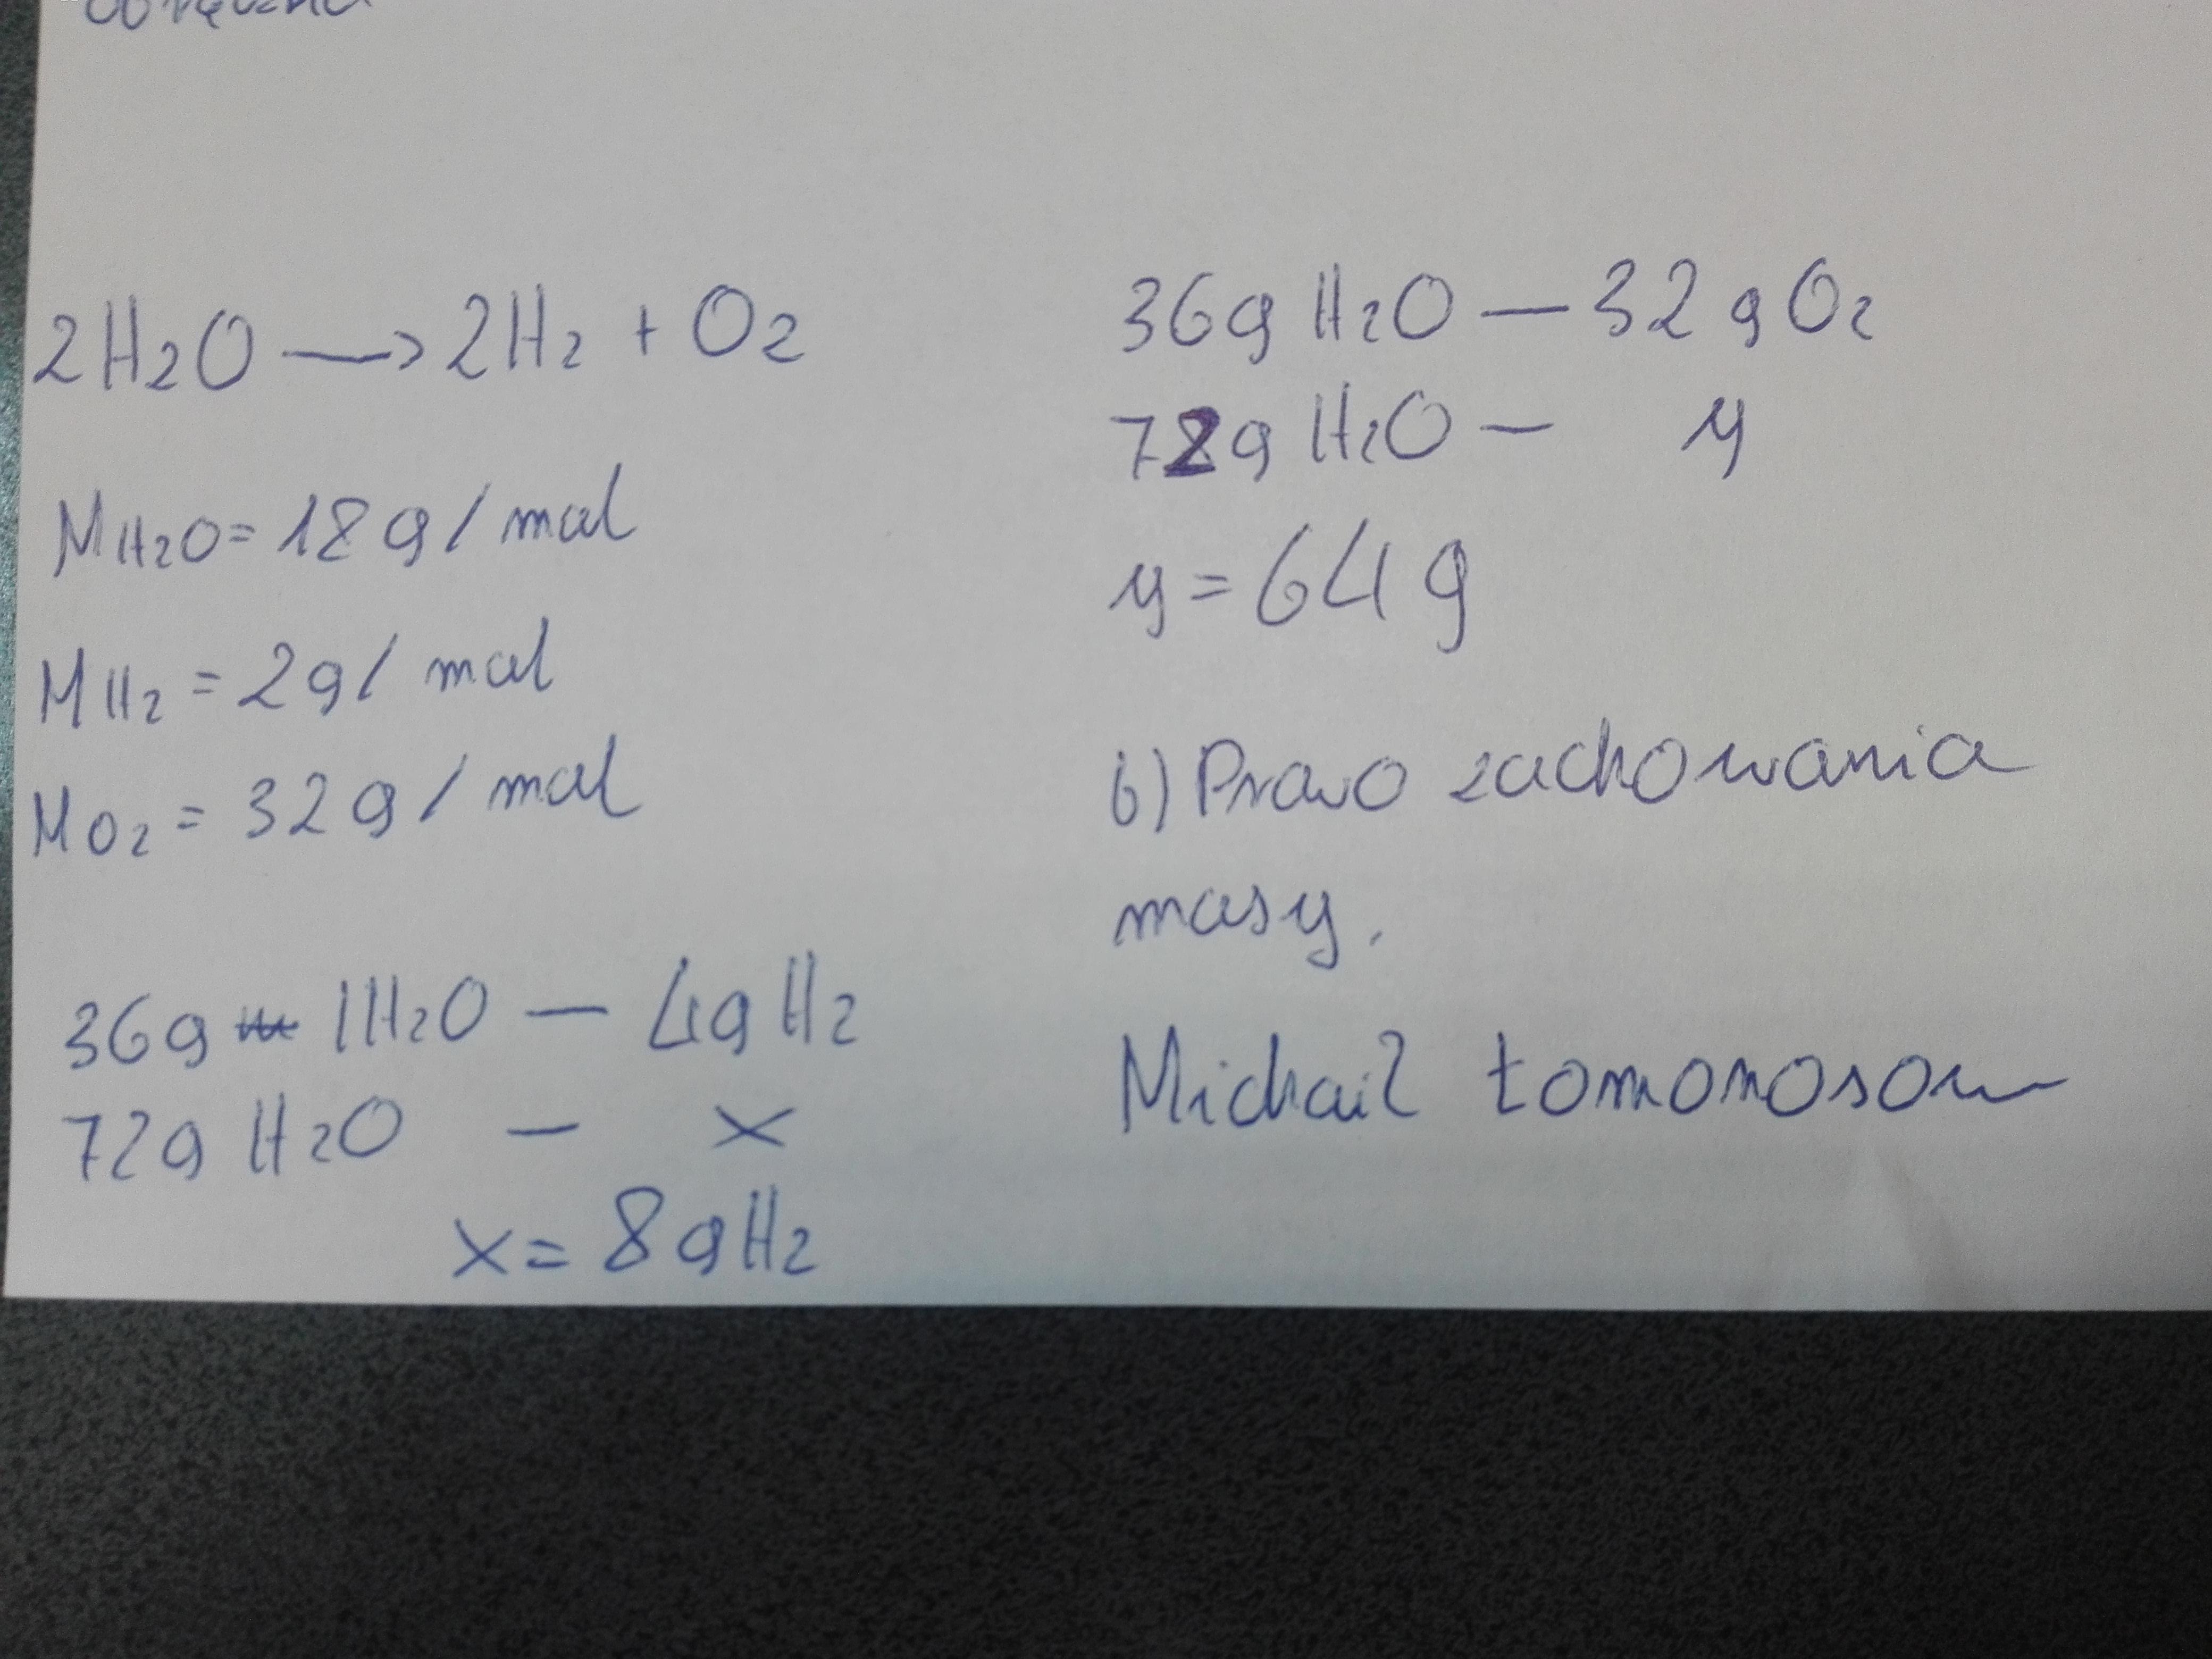 2H₂O → 2H₂ + O₂
M H₂O = 18 g / mol
M H₂ = 2 g / mol
M O₂ = 32 g / mol
36g H₂O — 4g H₂
72g H₂O — x
x = 8g H₂
36g H₂O — 32 g O₂
72g H₂O — y
y = 64 g
b) Prawo zachowania
masy.
Michaił Łomonosow